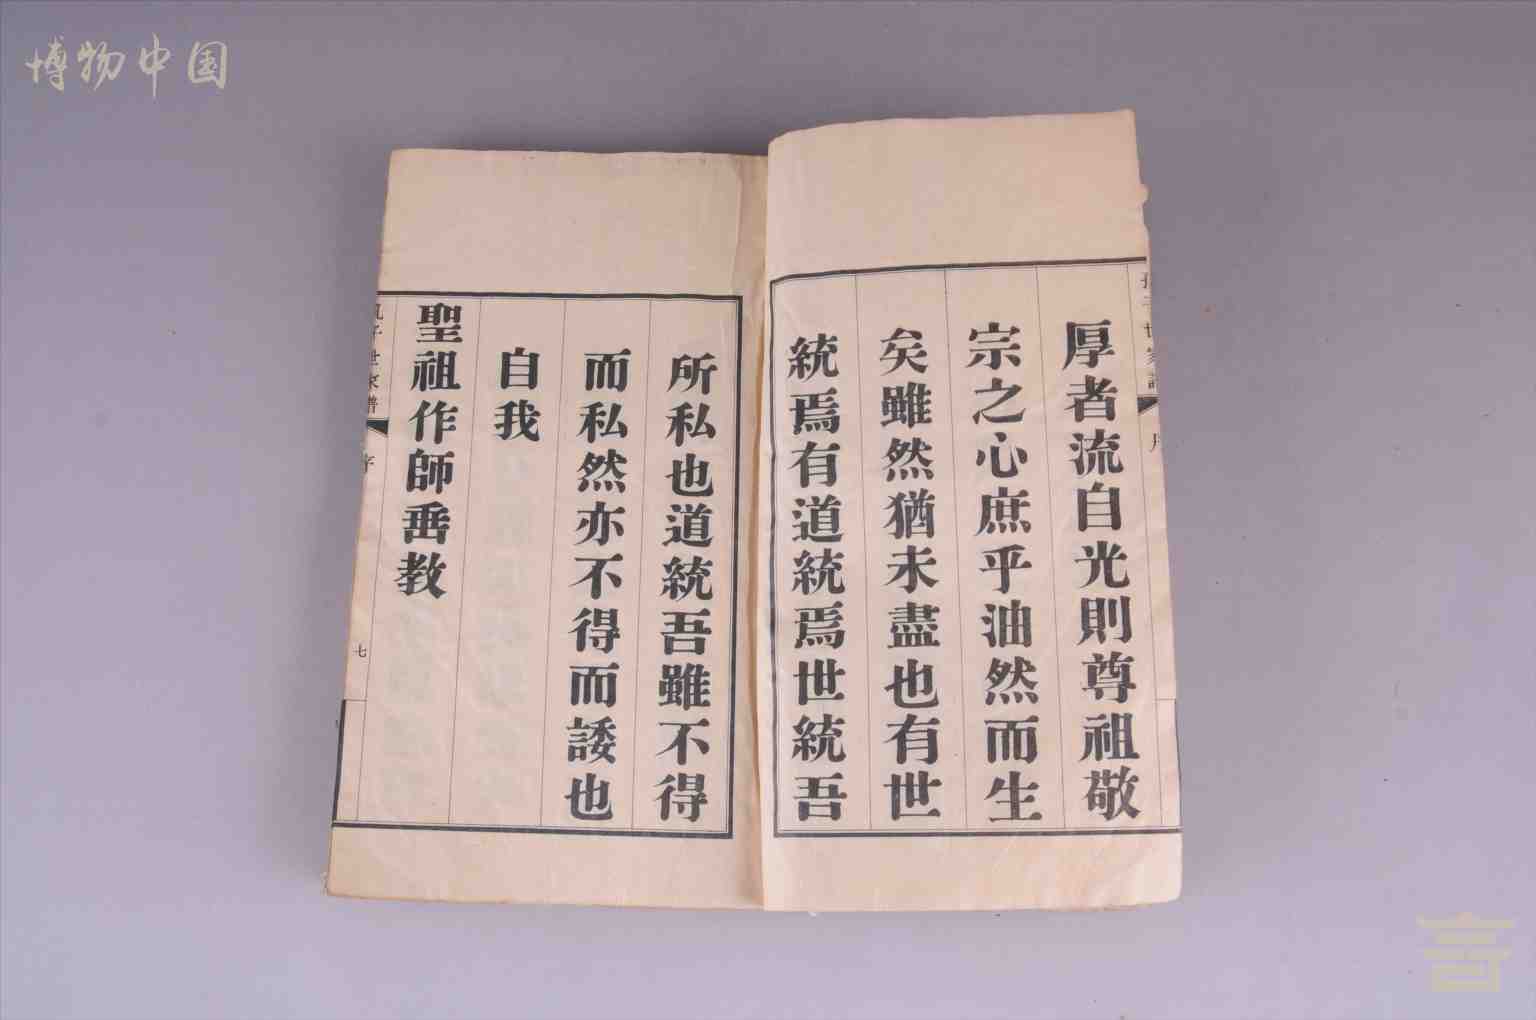 博物中国
孔子世家譜 序
厚者流自光則尊祖敬
宗之心庶乎油然而生
矣雖然猶未盡也有世
統焉有道統焉世統吾
所私也道統吾雖不得
而私然亦不得而諉也
自我
聖祖作師垂教
孔子世家譜 序 七